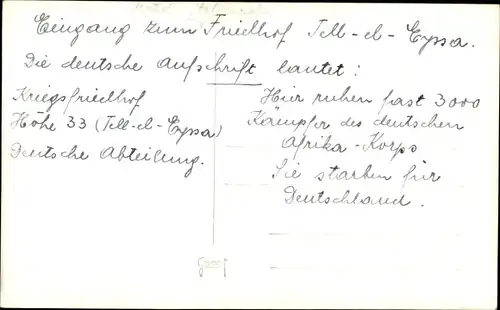 Eingang zum Friedhof Tell-el-Eyssa.
Die deutsche Aufschrift lautet:
Kriegsfriedhof
Höhe 33 (Tell-el-Eyssa)
Deutsche Abteilung.
Hier ruhen fast 3000
Kämpfer des deutschen
Afrika-Korps
Sie starben für
Deutschland.